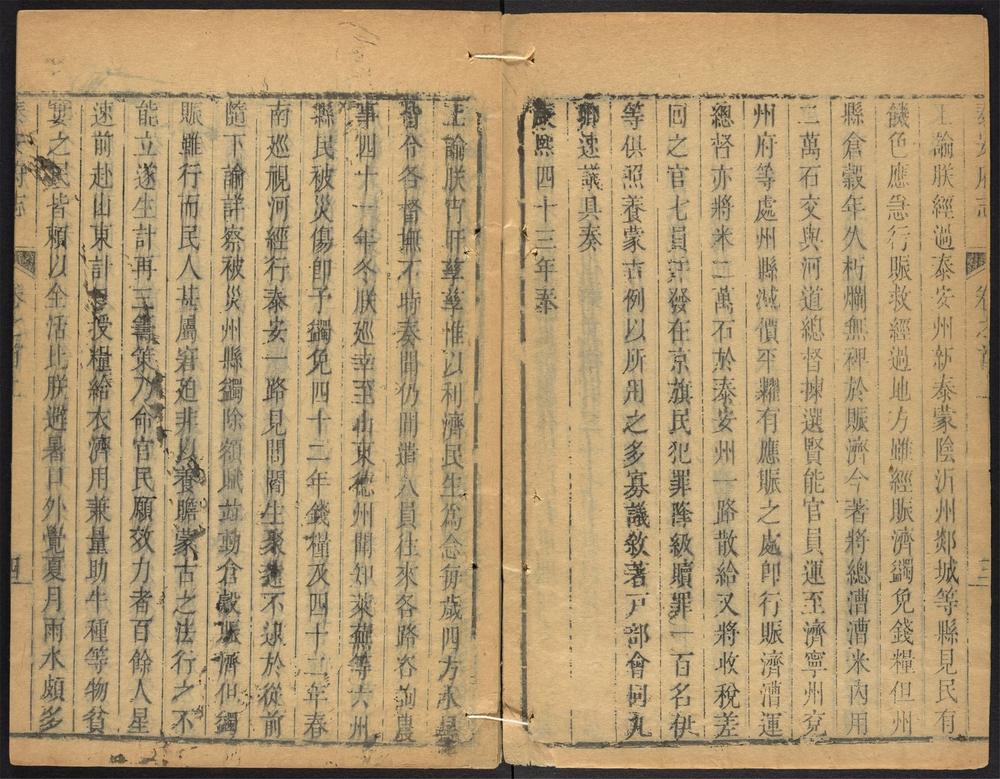 泰安府志 卷之首 三
上諭朕經過泰安州新泰蒙陰沂州郯城等縣見民有
饑色應急行賑救經過地方雖經賑濟蠲免錢糧但州
縣倉穀年久朽爛無裨於賑濟今著將總漕漕米內用
二萬石交與河道總督揀選賢能官員運至濟寧州兖
州府等處州縣減價平糶有應賑之處即行賑濟漕運
總督亦將米二萬石於泰安州一路散給又將收稅差
回之官七員并發在京旗民犯罪降級贖罪一百名供
等俱照養蒙古例以所用之多寡議敘著戸部會同九
卿速議具奏
康熙四十三年奉
上諭朕宵旰孳孳惟以利濟民生為念每歲四方水旱
皆令各督撫不時奏聞仍間遣人員往來各路咨詢農
事四十一年冬朕廵幸至山東德州聞知萊蕪等六州
縣民被災傷卽予蠲免四十二年錢糧及四十二年春
南廵視河經行泰安一路見閭閻生聚不逮於從前
隨下諭詳察被災州縣蠲除額賦並動倉穀賑濟但蠲
賑雖行而民人甚屬窘迫非以養贍蒙古之法行之不
能立遂生計再三籌策乃命官民願效力者百餘人星
速前赴山東計授糧給衣濟用兼量助牛種等物貧
窶之民皆賴以全活比朕避暑口外覺夏月雨水頗多
泰安府志 卷之首上 四